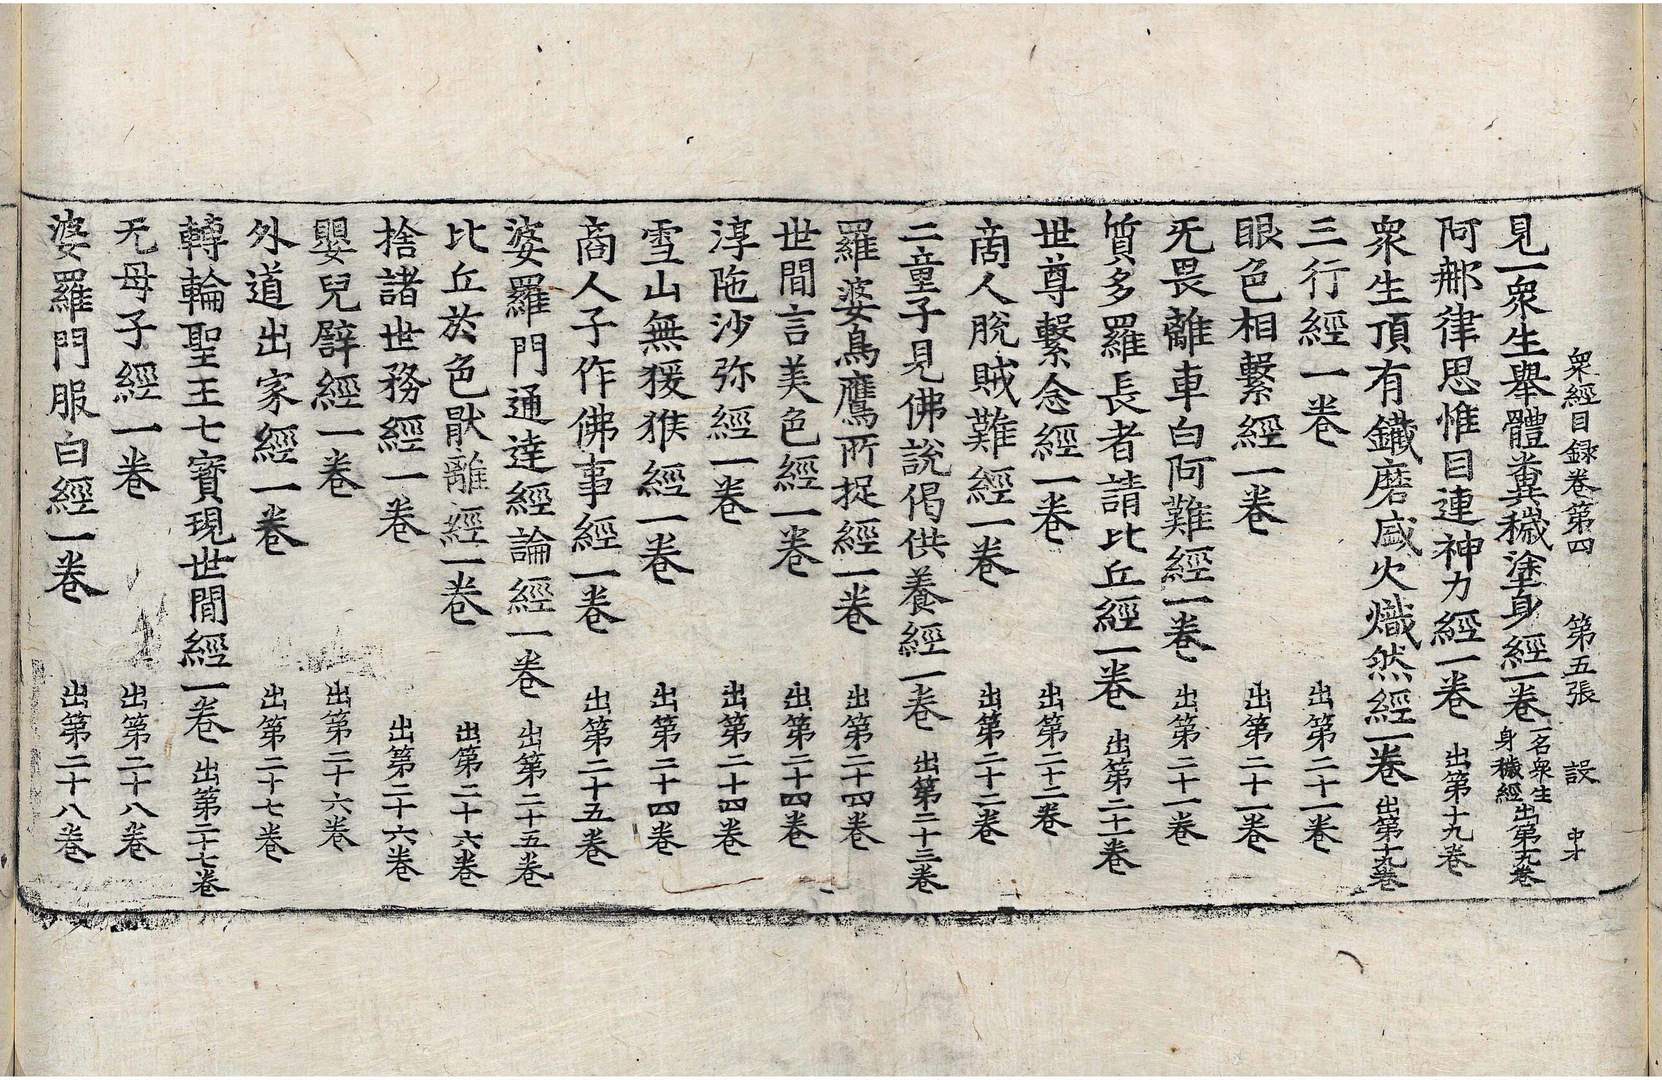 衆經目録卷第四 第五張 設 中才
見一衆生舉體糞穢塗身經一卷 一名衆生身穢經 出第十九卷
阿郍律思惟目連神力經一卷 出第十九卷
衆生頂有鐵磨盛火熾然經一卷 出第十九卷
三行經一卷 出第二十一卷
眼色相繫經一卷 出第二十一卷
旡畏離車白阿難經一卷 出第二十一卷
質多羅長者請比丘經一卷 出第二十一卷
世尊繫念經一卷 出第二十二卷
商人脫賊難經一卷 出第二十二卷
二童子見佛說偈供養經一卷 出第二十三卷
羅婆鳥鷹所捉經一卷 出第二十四卷
世間言美色經一卷 出第二十四卷
淳陁沙弥經一卷 出第二十四卷
雪山無猨猴經一卷 出第二十四卷
商人子作佛事經一卷 出第二十五卷
婆羅門通達經論經一卷 出第二十五卷
比丘於色猒離經一卷 出第二十六卷
捨諸世務經一卷 出第二十六卷
嬰兒譬經一卷 出第二十六卷
外道出家經一卷 出第二十七卷
轉輪聖王七寶現世間經一卷 出第二十七卷
无母子經一卷 出第二十八卷
婆羅門服白經一卷 出第二十八卷